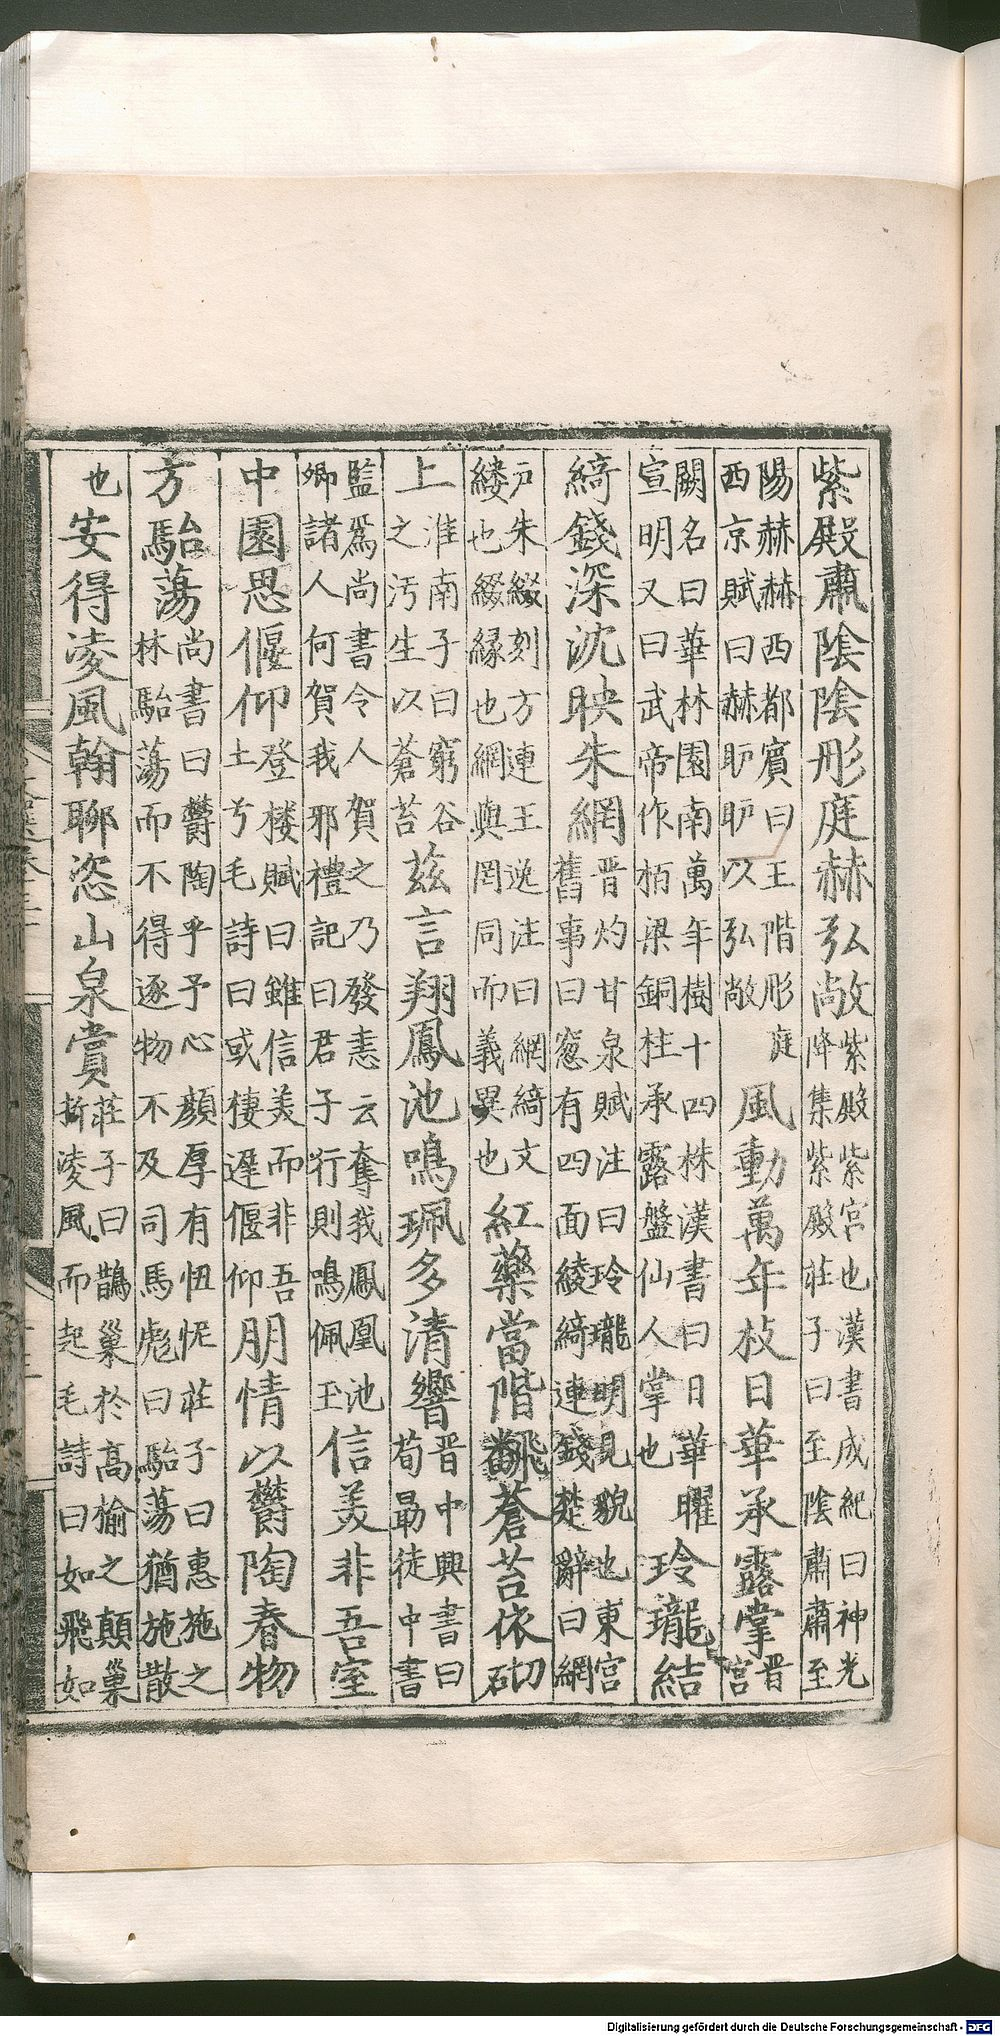 紫殿肅陰陰彤庭赫弘敞紫殿紫宮也漢書成紀曰神光降集紫殿莊子曰至陰肅肅至
陽赫赫西都賓曰王階彤庭西京賦曰赫昈昈以弘敞風動萬年枝日華承露掌晉宮
闕名曰華林園南萬年樹十四株漢書曰日華曜宣明又曰武帝作栢梁銅柱承露盤仙人掌也玲瓏結
綺錢深沈映朱網晉灼甘泉賦注曰玲瓏明見貌也東宮舊事曰窓有四面綾綺連錢楚辭曰網
戶朱綴刻方連王逸注曰網綺文緀也綴緣也網與罔同而義異也紅藥當階飜蒼苔依砌
上淮南子曰窮谷之汚生以蒼苔茲言翔鳳池鳴珮多清響晉中興書曰荀勗徒中書
監爲尚書令人賀之乃發恚云奪我鳳凰池卿諸人何賀我邪禮記曰君子行則鳴佩玉信美非吾室
中園思偃仰登樓賦曰雖信美而非吾土兮毛詩曰或棲遲偃仰朋情以鬱陶春物
方駘蕩尚書曰鬱陶乎予心顏厚有忸怩莊子曰惠施之林駘蕩而不得逐物不及司馬彪曰駘蕩猶施散
也安得凌風翰聊恣山泉賞莊子曰鵲巢於高楡之顛巢折凌風而起毛詩曰如飛如
Digitalisierung gefördert durch die Deutsche Forschungsgemeinschaft - DFG